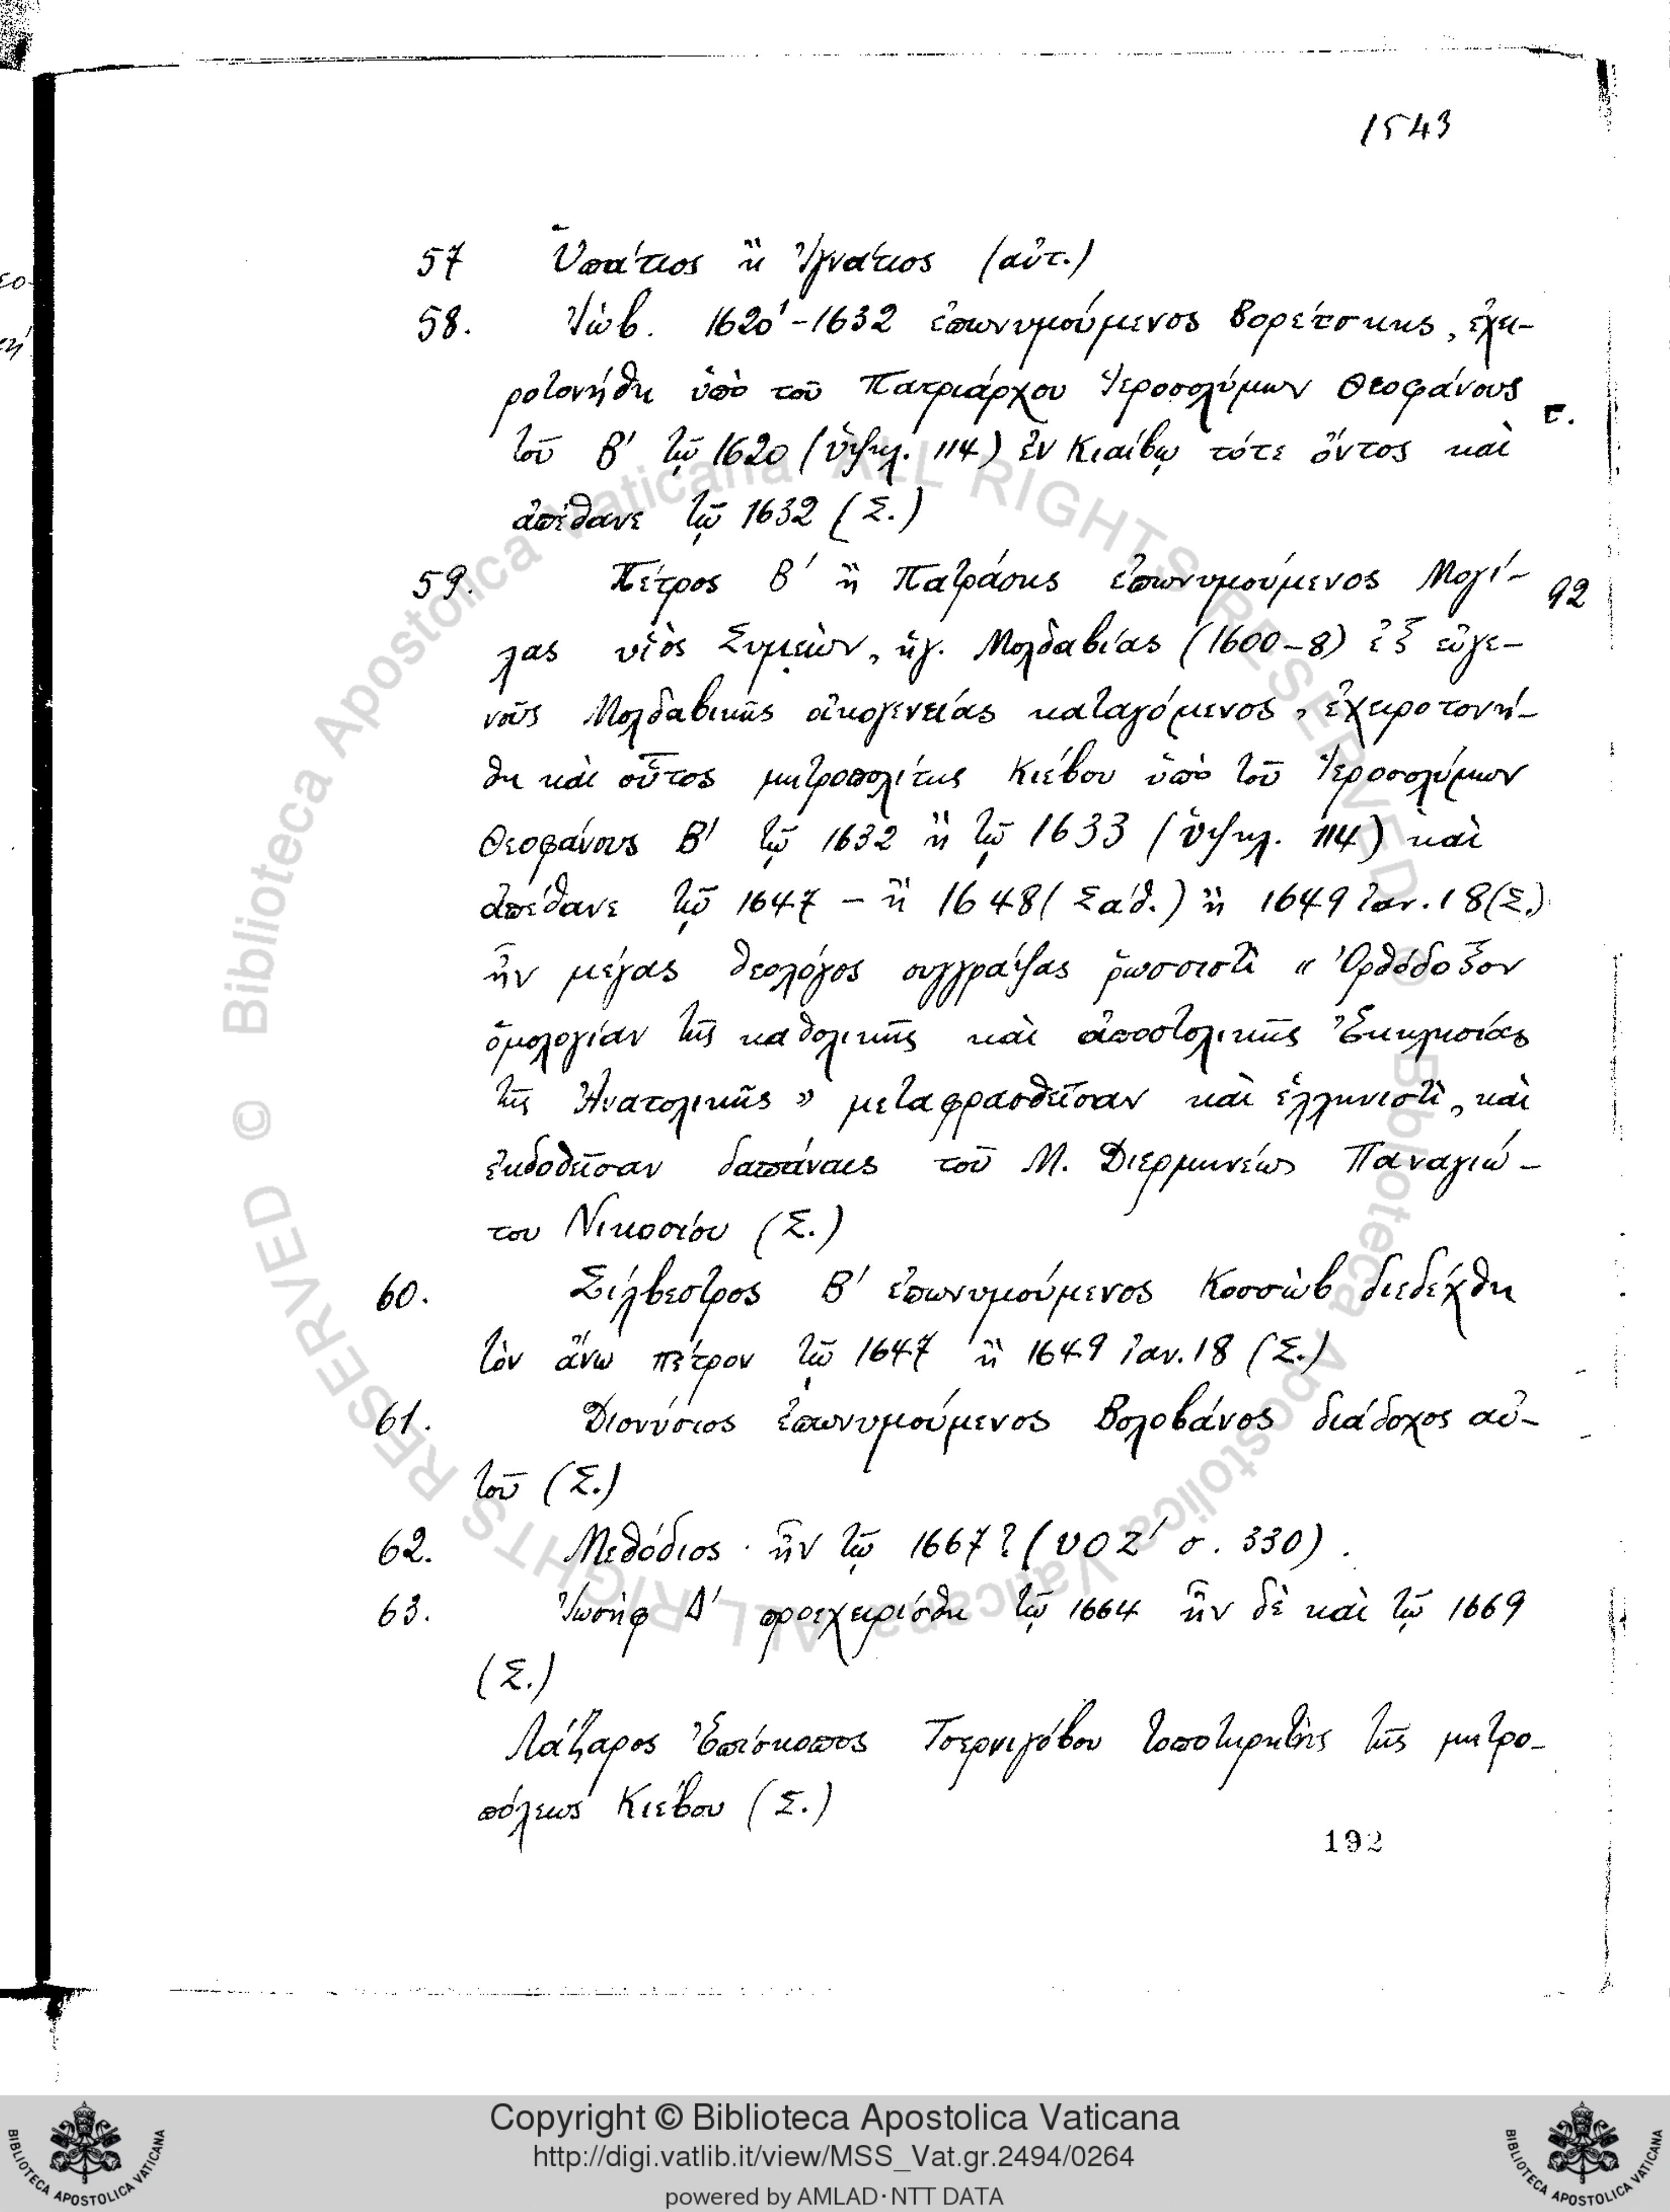 1543
57 Ὑπάτιος ἢ Ἰγνάτιος (αὐτ.)
58. Ἰώβ. 1620-1632 ἐπωνυμούμενος Βορέτσκης, ἐχει-
ροτονήθη ὑπὸ τοῦ Πατριάρχου Ἱεροσολύμων Θεοφάνους
τοῦ Β' τῷ 1620 (ὑψηλ. 114) ἐν Κιαίβῳ τότε ὄντος καὶ
ἀπέθανε τῷ 1632 (Σ.)
59. Πέτρος Β' ἢ Πατράσης ἐπωνυμούμενος Μογί-
92
λας υἱὸς Συμεὼν, ἡγ. Μολδαβίας (1600-8) ἐξ εὐγε-
νοῦς Μολδαβικῆς οἰκογενείας καταγόμενος, ἐχειροτονή-
θη καὶ οὗτος μητροπολίτης Κιέβου ὑπὸ τοῦ Ἱεροσολύμων
Θεοφάνους Β' τῷ 1632 ἢ τῷ 1633 (ὑψηλ. 114) καὶ
ἀπέθανε τῷ 1647 - ἢ 1648 (Σάθ.) ἢ 1649 Ἰαν. 18 (Σ.)
ἦν μέγας θεολόγος συγγράψας ῥωσσιστὶ « Ὀρθόδοξον
ὁμολογίαν τῆς καθολικῆς καὶ ἀποστολικῆς Ἐκκλησίας
τῆς Ἀνατολικῆς » μεταφρασθεῖσαν καὶ ἑλληνιστὶ, καὶ
ἐκδοθεῖσαν δαπάναις τοῦ Μ. Διερμηνέως Παναγιώ-
του Νικοσίου (Σ.)
60. Σίλβεστρος Β' ἐπωνυμούμενος Κοσσὼβ διεδέχθη
τὸν ἄνω πέτρον τῷ 1647 ἢ 1649 ἰαν. 18 (Σ.)
61. Διονύσιος ἐπωνυμούμενος Βολοβάνος διάδοχος αὐ-
τοῦ (Σ.)
62. Μεθόδιος · ἦν τῷ 1667? (ΥΟΖ' σ. 330).
63. Ἰωσὴφ Δ' προεχειρίσθη τῷ 1664 ἦν δὲ καὶ τῷ 1669
(Σ.)
Λάζαρος Ἐπίσκοπος Τσερνιγόβου τοποτηρητὴς τῆς μητρο-
πόλεως Κιέβου (Σ.)
192
© Biblioteca Apostolica Vaticana ALL RIGHTS RESERVED
© Biblioteca Apostolica Vaticana ALL RIGHTS RESERVED
Copyright © Biblioteca Apostolica Vaticana
http://digi.vatlib.it/view/MSS_Vat.gr.2494/0264
powered by AMLAD·NTT DATA
BIBLIOTECA APOSTOLICA VATICANA
BIBLIOTECA APOSTOLICA VATICANA